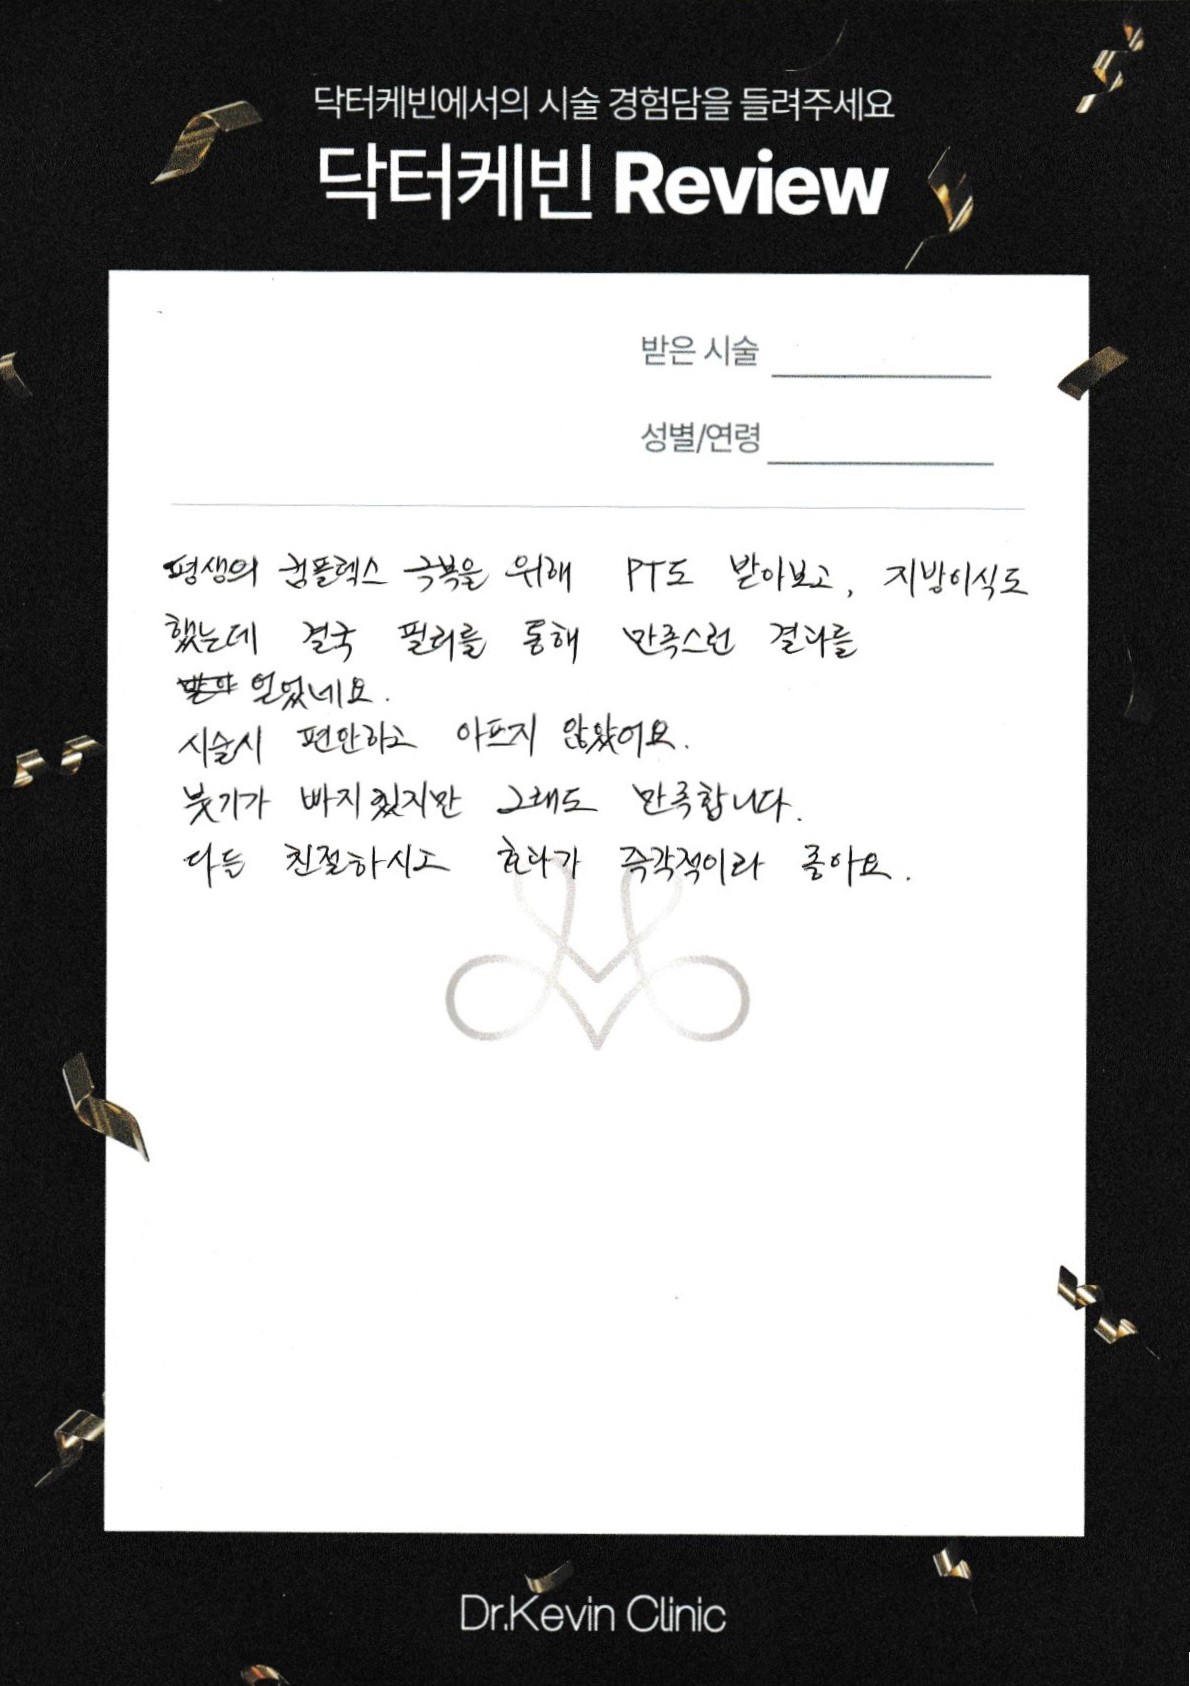 닥터케빈에서의 시술 경험담을 들려주세요
닥터케빈 Review
받은 시술
성별/연령
평생의 컴플렉스 극복을 위해 PT도 받아보고, 지방이식도
했는데 결국 필러를 통해 만족스런 결과를
얻었네요.
시술시 편안하고 아프지 않았어요.
붓기가 빠지겠지만 그래도 만족합니다.
다들 친절하시고 효과가 즉각적이라 좋아요.
Dr.Kevin Clinic